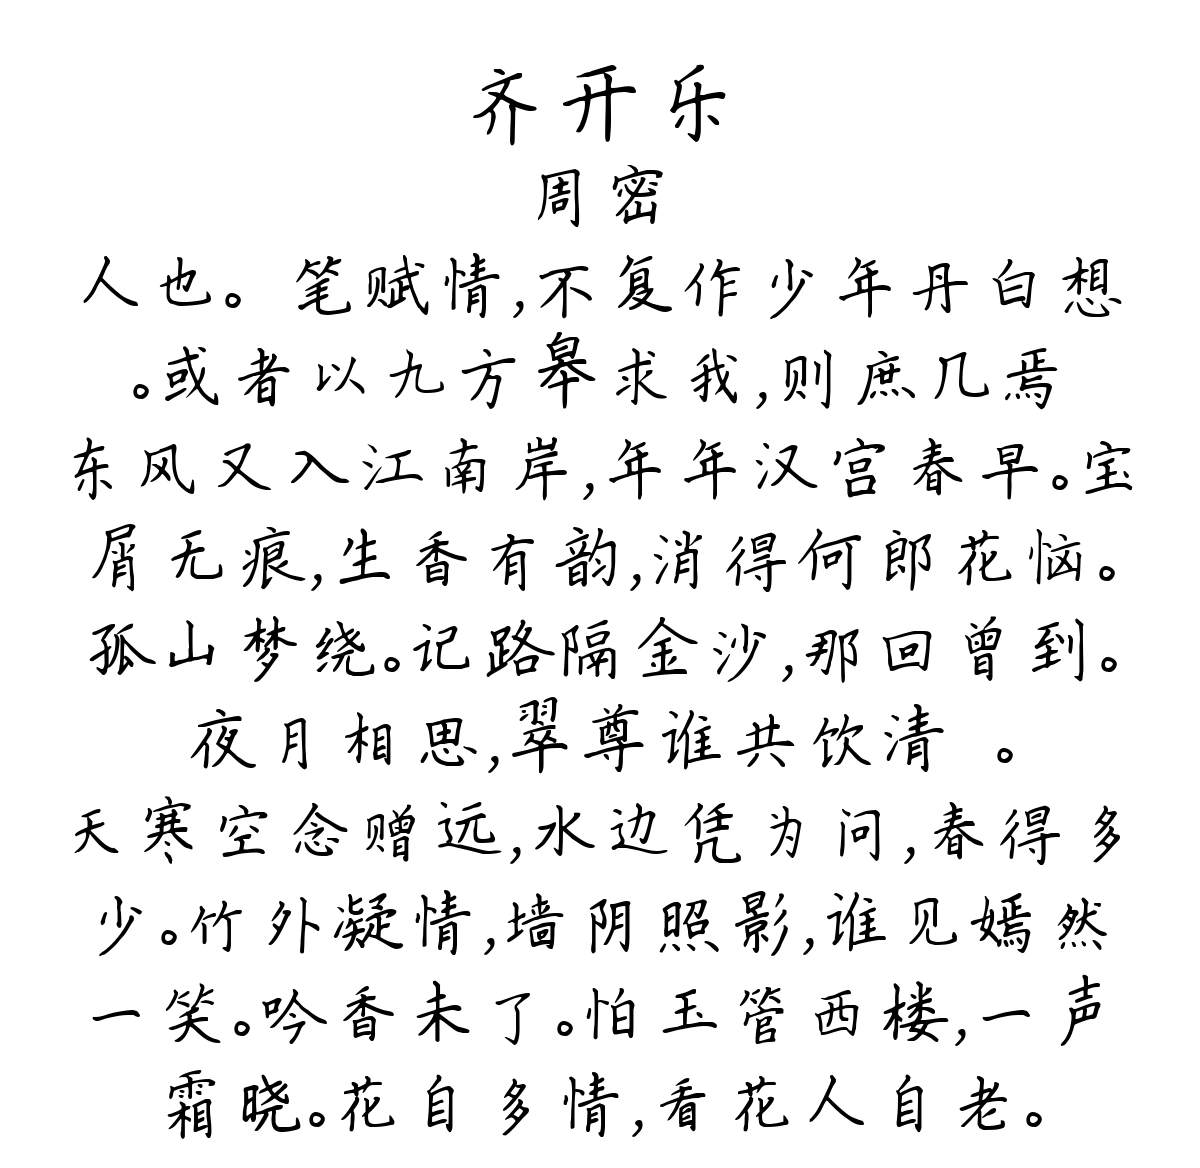 齐开乐
周密
人也。笔赋情,不复作少年丹白想
。或者以九方皋求我,则庶几焉
东风又入江南岸,年年汉宫春早。宝
屑无痕,生香有韵,消得何郎花恼。
孤山梦绕。记路隔金沙,那回曾到。
夜月相思,翠尊谁共饮清 。
天寒空念赠远,水边凭为问,春得多
少。竹外凝情,墙阴照影,谁见嫣然
一笑。吟香未了。怕玉管西楼,一声
霜晓。花自多情,看花人自老。